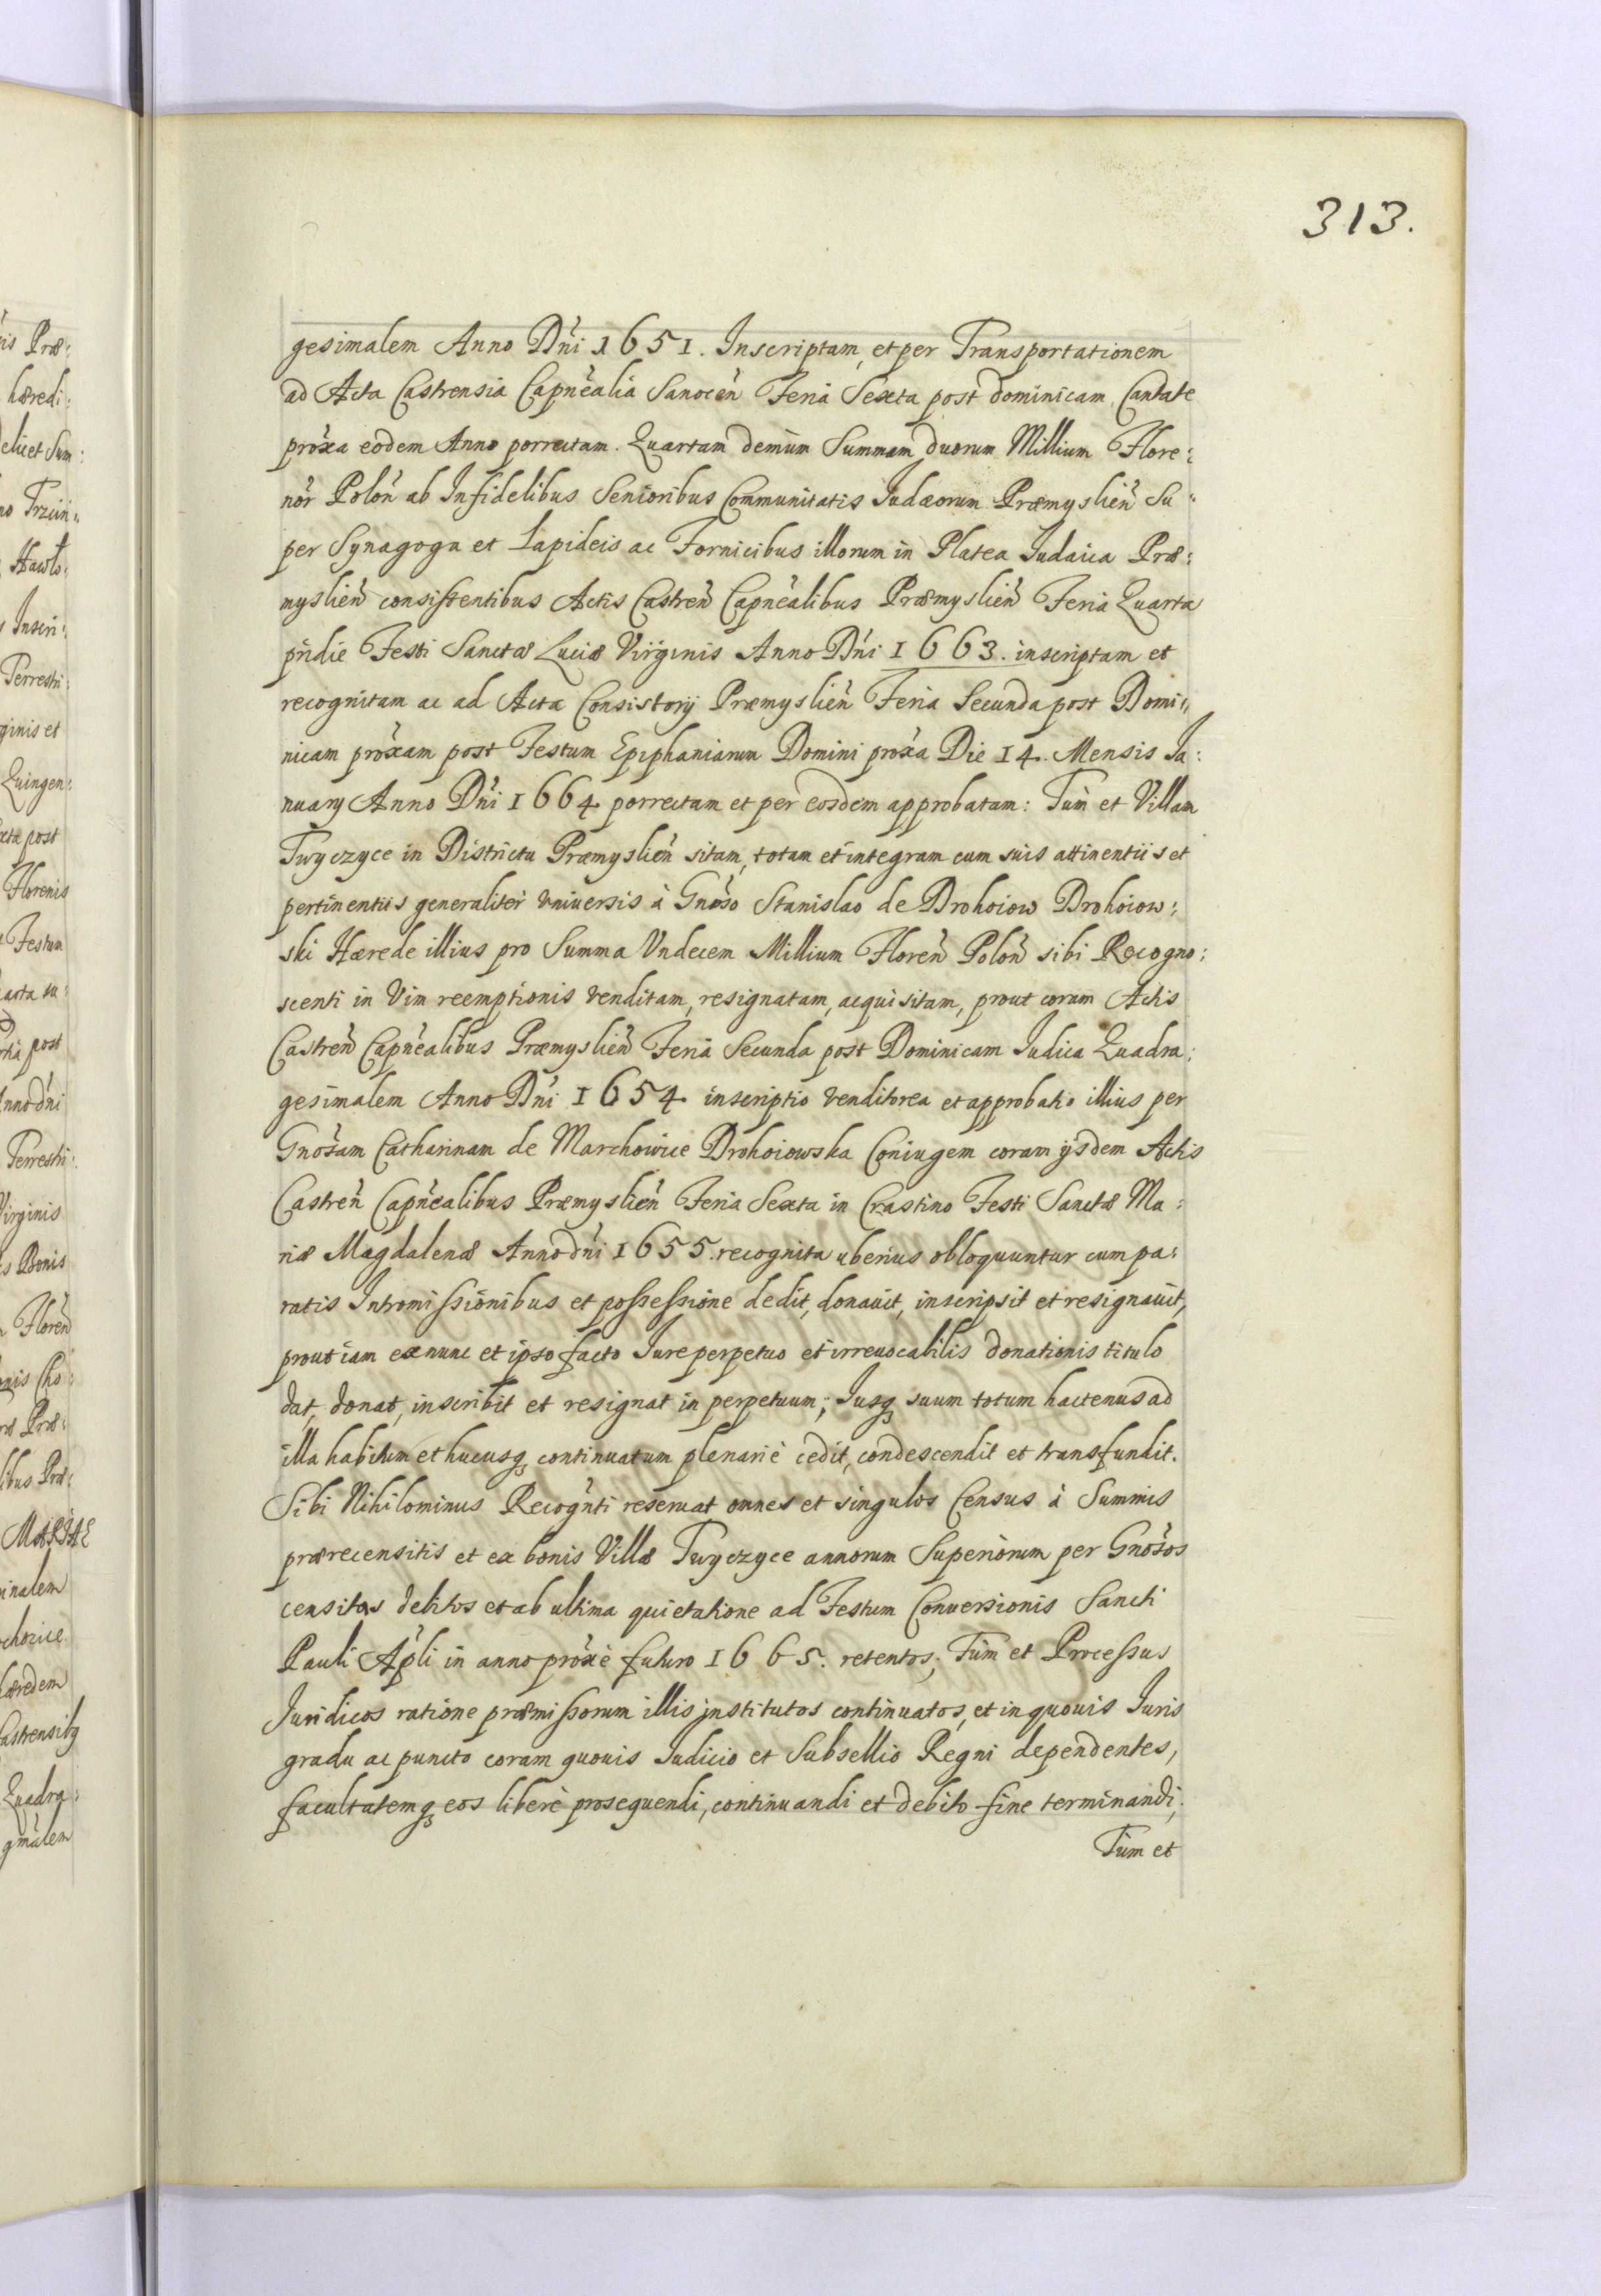 313.
gesimalem Anno Dńi 1651. Inscriptam, et per Transportationem
ad Acta Castrensia Capnẽalia Sanocen̉ Feria Sexta post dominicam Cantate
prox̉a eodem Anno porrectam. Quartam demùm Summam duorum Millium Flore:
nor̉ Polon̉ ab Infidelibus Senioribus Communitatis Judæorum Præmyslien̉ Su:
per Synagoga et Lapideis ac Fornicibus illorum in Platea Judaica Præ:
myslien̉ consistentibus Actis Castren̉ Capnẽalibus Præmyslien̉ Feria Quarta
pridie Festi Sanctæ Luciæ Virginis Anno Dńi 1663. inscriptam et
recognitam ac ad Acta Consistorij Præmyslien̉ Feria Secunda post Domi:
nicam prox̉am post Festum Epiphaniarum Domini prox̉a Die 14. Mensis Ja:
nuarij Anno Dńi 1664 porrectam et per eosdem approbatam: Tùm et Villam
Twyczyce in Districtu Præmyslien̉ sitam, totam et integram cum suis attinentiis et
pertinentiis generaliter vniuersis à Gnoso Stanislao de Drohoiow Drohoiow:
ski Hærede illius pro Summa Vndecem Millium Floren̉ Polon̉ sibi Recogno:
scenti in Vim reemptionis venditam, resignatam, acquisitam, prout coram Actis
Castren̉ Capnẽalibus Præmyslien̉ Feria Secunda post Dominicam Judica Quadra:
gesimalem Anno Dńi 1654 inscriptio venditorea et approbatio illius per
Gnosam Catharinam de Marchowice Drohoiowska Coniugem coram ijsdem Actis
Castren̉ Capnẽalibus Præmyslien̉ Feria Sexta in Crastino Festi Sanctæ Ma:
riæ Magdalenæ Anno dńi 1655. recognita uberius obloquuntur cum pa:
ratis Intromißionibus et poßeßione dedit, donauit, inscripsit et resignauit,
prout iam ex nunc et ipso facto Jure perpetuo et irreuocabilis donationis titulo
dat, donat, inscribit et resignat in perpetuum; Jusq̨ suum totum hactenus ad
illa habitum et hucusq̨ continuatum plenariè cedit, condescendit et transfundit.
Sibi Nihilominus Recogn̉ti reseruat omnes et singulos Census à Summis
prærecensitis et ex bonis Villæ Twyczyce annorum Superiorum per Gnosos
censitas debitos et ab ultima quietatione ad Festum Conuersionis Sancti
Pauli Apl̉i in anno prox̉è futuro 1665. retentos; Tùm et Proceßus
Juridicos ratione præmißorum illis jnstitutos continuatos, et in quouis Juris
gradu ac puncto coram quouis Judicio et Subsellio Regni dependentes,
facultatemq̨ eos liberè prosequendi, continuandi et debito fine terminandi;
Tùm et